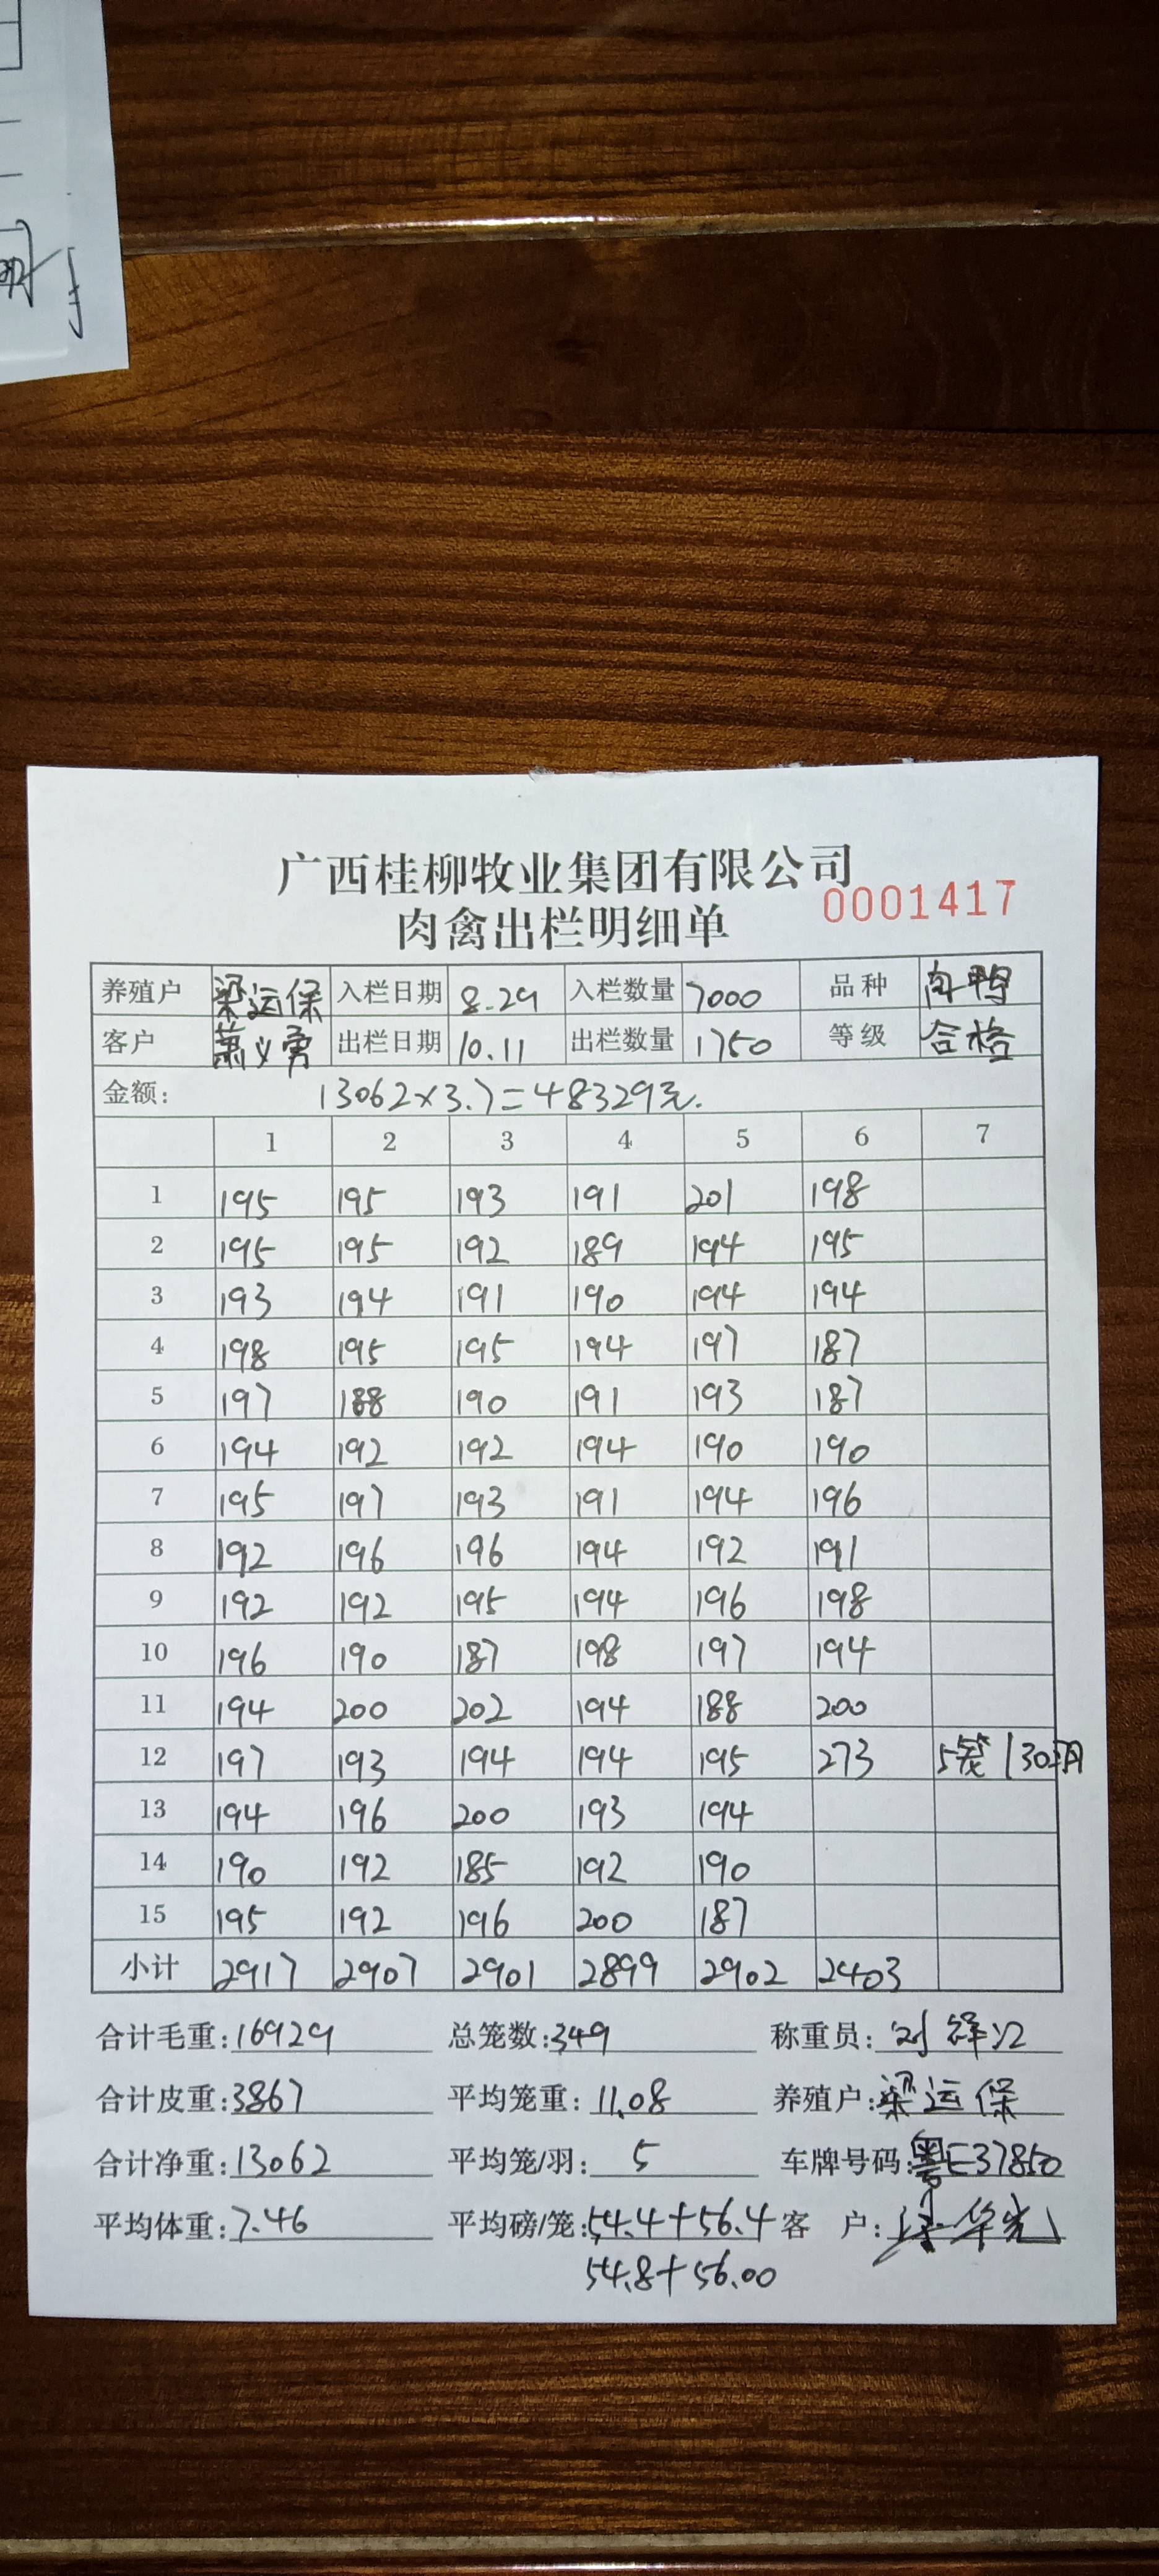 广西桂柳牧业集团有限公司
0001417
肉禽出栏明细单
养殖户 梁运保 入栏日期 8.29 入栏数量 7000 品种
客户 萧义勇 出栏日期 10.11 出栏数量 1750 等级 合格
金额: 13062×3.7=48329元.
1 2 3 4 5 6 7
1 195 195 193 191 201 198
2 195 195 192 189 194 195
3 193 194 191 190 194 194
4 198 195 195 194 197 187
5 197 188 190 191 193 187
6 194 192 192 194 190 190
7 195 197 193 191 194 196
8 192 196 196 194 192 191
9 192 192 195 194 196 198
10 196 190 187 198 197 194
11 194 200 202 194 188 200
12 197 193 194 194 195 273 5笼130
13 194 196 200 193 194
14 190 192 185 192 190
15 195 192 196 200 187
小计 2917 2907 2901 2899 2902 2403
合计毛重:16929 总笼数:349 称重员:
合计皮重:3867 平均笼重:11.08 养殖户:梁运保
合计净重:13062 平均笼/羽:5 车牌号码:粤E37850
平均体重:7.46 平均磅/笼:54.4+56.4 客 户:
54.8+56.00